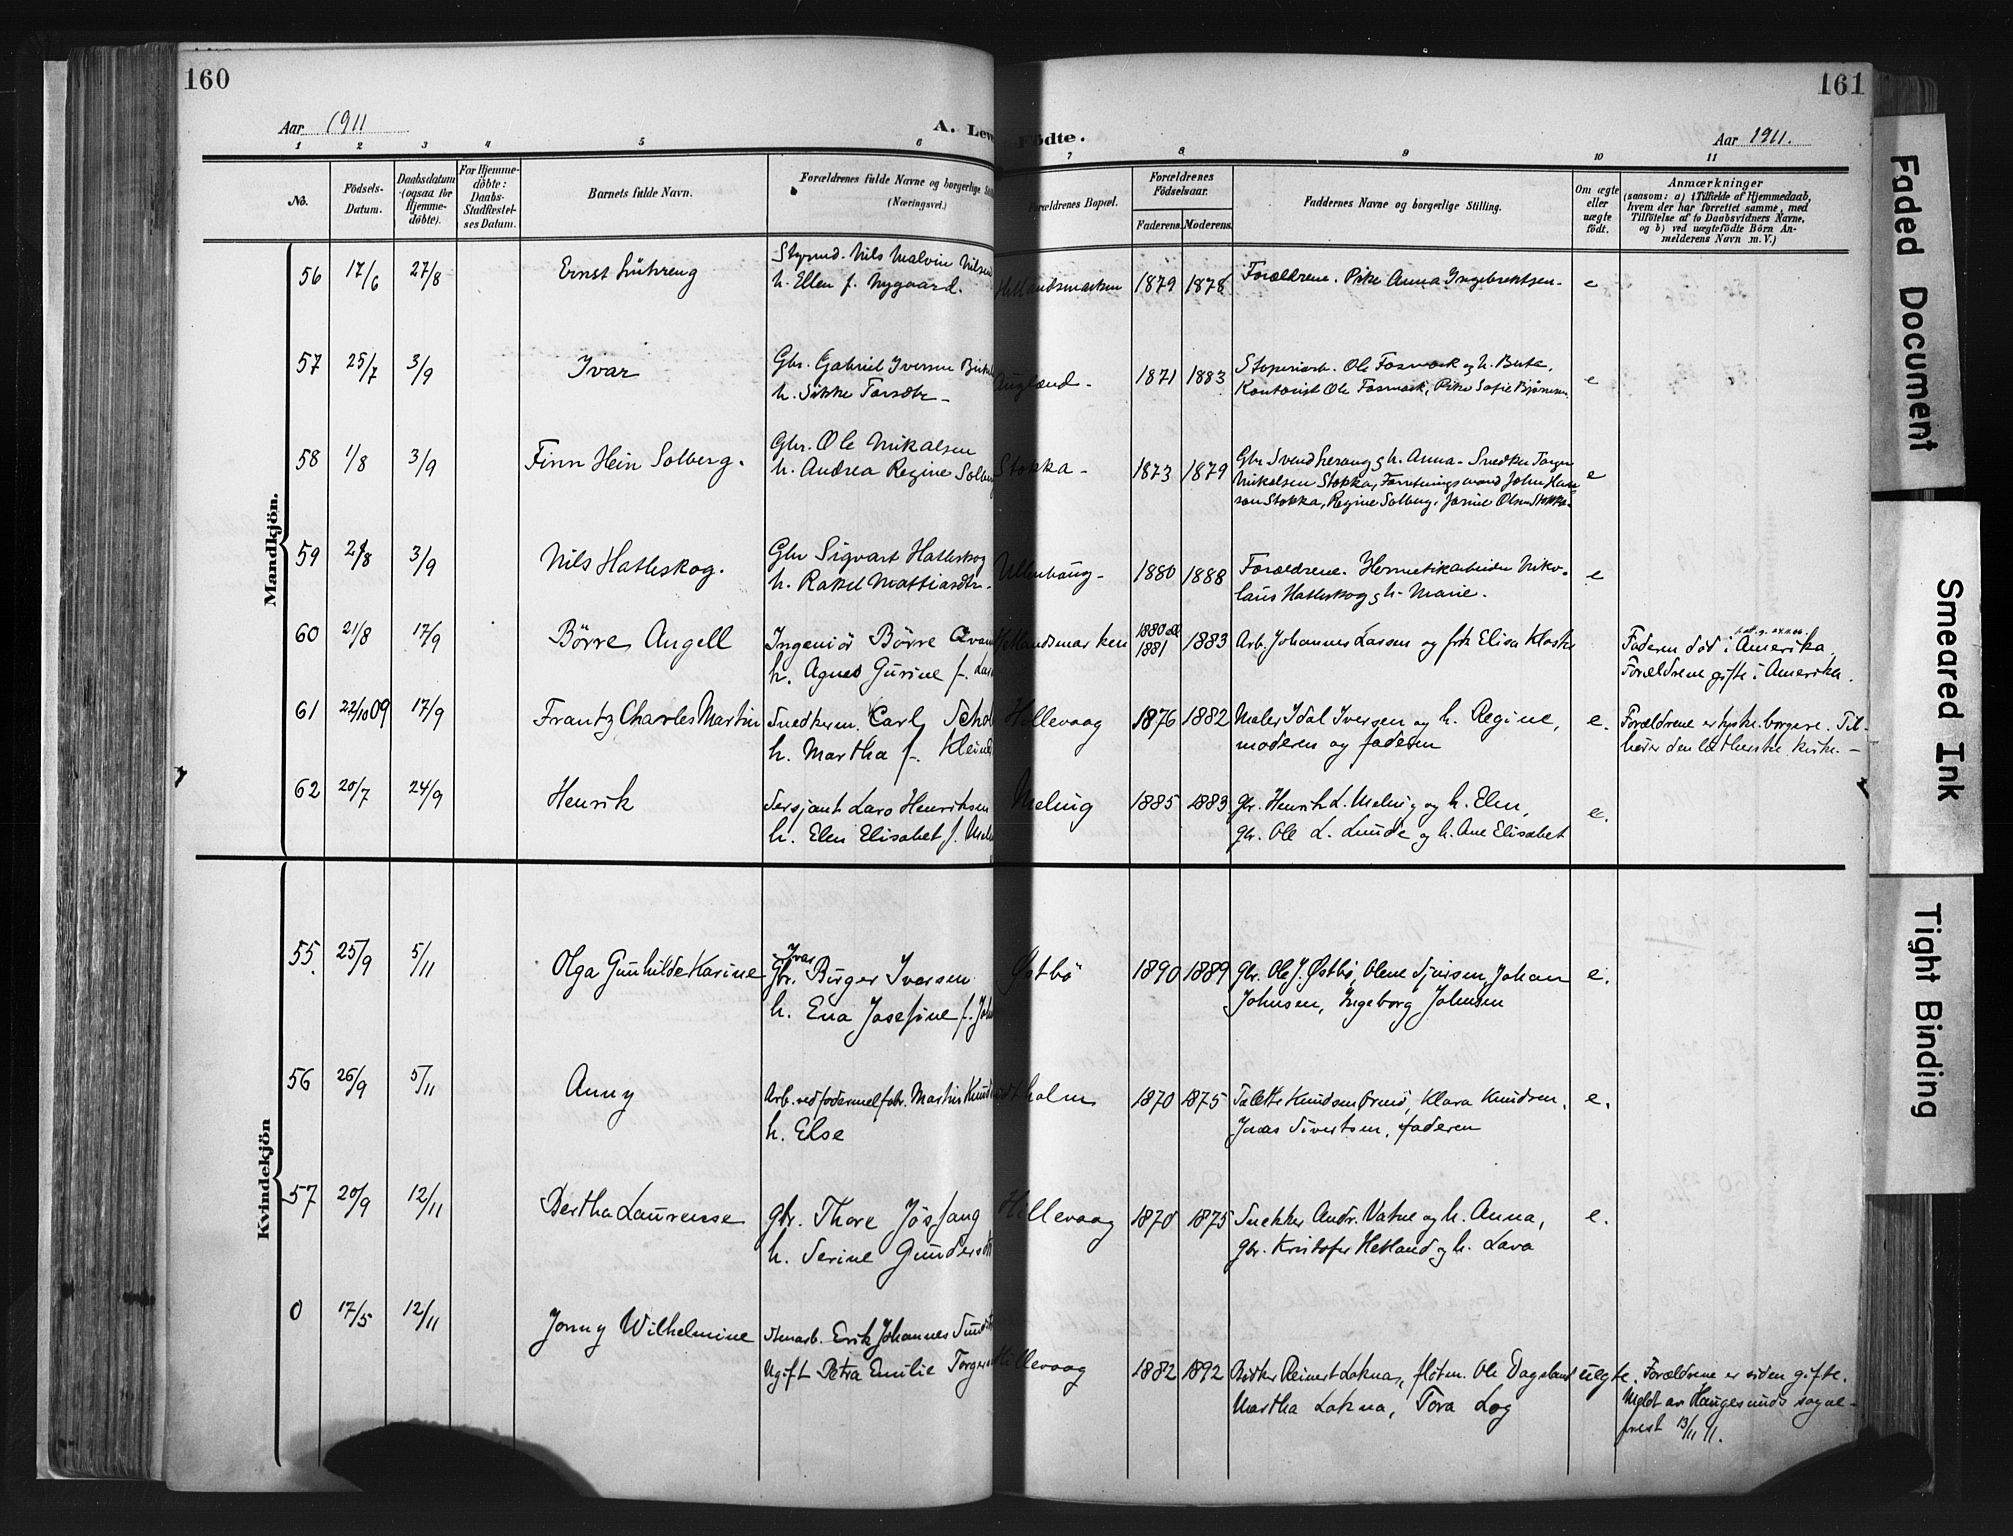 160
161
Aar 1911
A. Leve
Födte.
Aar 1911.
1 2 3 4 5 6 7 8 9 10 11
No.
Födsels-
Datum.
Daabsdatum
(ogsaa for
Hjemme-
döbte).
For Hjemme-
döbte:
Daabs-
Stadfæstel-
ses Datum.
Barnets fulde Navn.
Forældrenes fulde Navne og borgerlige Stil
(Næringsvei.)
Forældrenes Bopæl.
Forældrenes
Födselsaar.
Faderens. Moderens.
Faddernes Navne og borgerlige Stilling.
Om ægte
eller
uægte
födt.
Anmærkninger
(saasom: a) i Tilfælde af Hjemmedaab,
hvem der har forrettet samme, med
Tilföielse af to Daabsvidners Navne,
og b) ved uægtefödte Börn An-
melderens Navn m. V.)
Mandkjön.
56 17/6 27/8 Ernst Lühreng Styrmd. Nils Malvin Nilsen Hetlandsmarken 1879 1878 Forældrene. Pike Anna Ingebrektsen. e
h. Ellen f. Nygaard.
57 25/7 3/9 Ivar Gbr. Gabriel Iversen Auglænd. 1871 1883 Ole Fosmark og h. Berta, e
h. Sikke Tarsdtr. Kontorist Ole Fosmark, Pike Sofie Bjørnsen
58 1/8 3/9 Finn Hein Solberg. Gbr. Ole Nikalsen Stokka 1873 1879 Gbr Svend og h. Anna. Snedker Torger e
h. Andrea Regine Solberg Nikalsen Stokka, Forretningsmand John Han-
son Stokka, Regine Solberg, Olsen Stokka.
59 2/8 3/9 Nils Hatleskog. Gbr Sigvart Hatleskog Ullenhaug 1880 1888 Forældrene. Hermetikarbeider Niko- e
h. Rakel Mattiasdtr. laus Hatleskog og h. Marie.
60 21/8 17/9 Börre Angell Ingeniör Börre Hetlandsmarken 1880 el 1881 1883 Arb. Johannes Larsen og frk Elisa Faderen död i Amerika.
h. Agnes Gurine f. Lar Forældrene gifte i Amerika.
61 22/10 09 17/9 Frantz Charles Martin Snedkerm. Carl Schol Hillevaag 1876 1882 Maler Idal Iversen og h. Regine, e. Forældrene er tyske borgere. Til-
h. Martha f. Kleine moderen og faderen hører den lutherske kirke. –
62 20/7 24/9 Henrik Sersjant Lars Henriksen Meling 1885 1883 gbr. Henrik L. Meling og h. Elen, e.
h. Elen Elisabet f. gbr. Ole L. Lunde og h. Ane Elisabet
Kvindekjön
55. 25/9 5/11 Olga Gunhilde Karine Ivar
Gbr. Birger Iversen Østbö 1890 1889 Gbr. Ole J. Østbö, Olene Sjursen, Johan e.
h. Ena Josefine f. Joh Johnsen, Ingeborg Johnsen
56 26/9 5/11 Anny Arb. ved fodermelfabr. Martin Knud holm 1870 1875 Talette Knudsen, Klara Knudsen, e.
h. Else Jonas Sivertsen, faderen
57 20/9 12/11 Bertha Laurense gbr. Thore Jösfang Hillevaag 1870 1875 Snekker Andr. Vatne og h. Anna, e.
h. Serine Gunders gbr. Kristofer Hetland og h. Lava
0 17/5 12/11 Jonny Wilhelmine Stenarb. Erik Johannes Sund
Ugift Petra Emilie Torgers Hillevaag 1882 1892 Reinert Loknas, flötm. Ole Dagsland uegte. Forældrene er siden gifte.
Martha Lokna, Tora Log Meldt av Haugesunds sogne-
prest 13/11 11.
Faded Document
Smeared Ink
Tight Binding